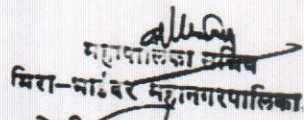 महापालिका सचिव
मिरा-भाईंदर महानगरपालिका